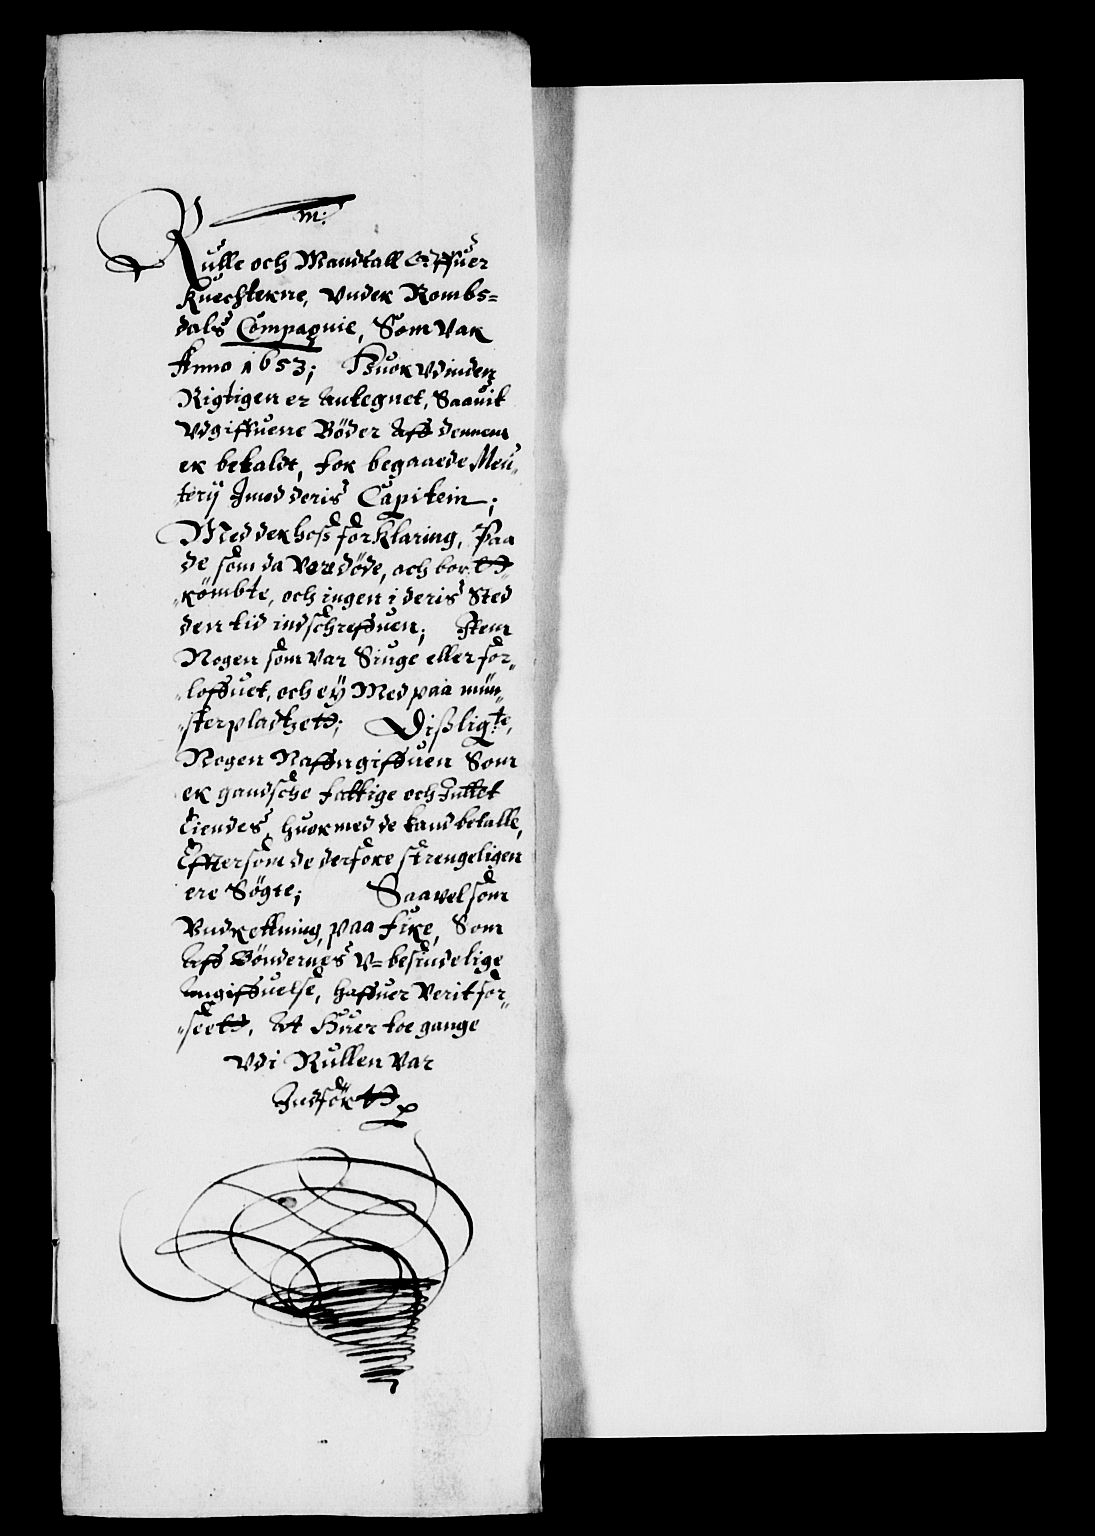 m:
Rulle och Mandtall Offuer
Knechterne, Vnder Rombs=
dals Compagnie, Som Var
Anno 1653; Huor Vdinden
Rigtigen er Antegnet, Saauit
Vdgiffuene Böder Aff dennem
er betaldt, for begaaede Meu„
terij Imod deris Capitein;
Med derhoß forklaring, Paa
de som da Vare döde, och bort„
„römbte, och ingen i deris Sted
den tid indschreffuen; Item
Nogen som Var Siuge eller for„
„loffuet, och eÿ Med paa mün„
„sterpladtzett; Dißligte,
Nogen Naffngiffuen Som
er gandsche fattige och Inttet
Eiendes, huormed de kand betalle,
Efftersom de derfore strengeligen
ere Sögte; Saavelsom
Vndrettning, paa fire, Som
Aff Böndernes V=besindelige
Angiffuelse, haffuer Verit for„
„seett, At Huer toe gange
Vdi Rullen Var
Indförtt